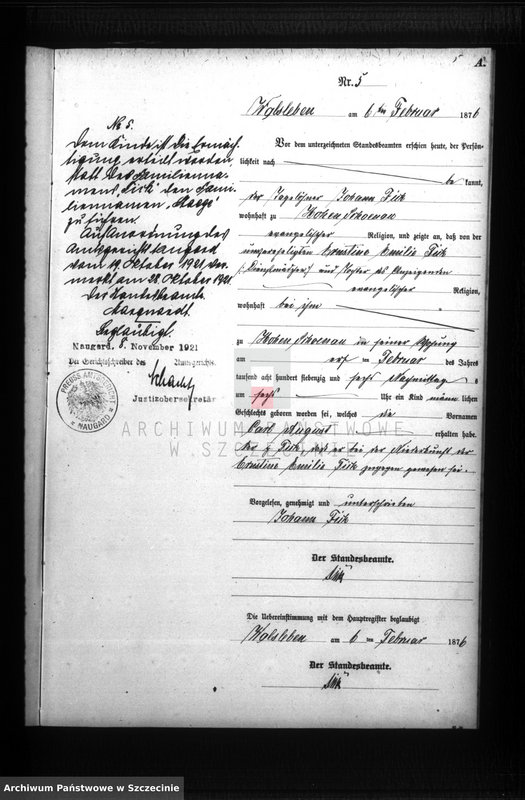 5
A.
Nr. 5
Walsleben am 6ten Februar 1876
Vor dem unterzeichneten Standesbeamten erschien heute, der Persön-
lichkeit nach
be kannt,
der Tagelöhner Johann Fick
wohnhaft zu Hohen Schoenau
evangelischer Religion, und zeigte an, daß von der
unverehelichten Ernstine Emilie Fick
(Dienstmädchen) und Tochter des Anzeigenden
evangelischer Religion,
wohnhaft bei ihm
zu Hohen Schoenau in seiner Wohnung
am ten Februar des Jahres
tausend acht hundert siebenzig und sechs Nachmittag s
um sechs Uhr ein Kind männ lichen
Geschlechts geboren worden sei, welches die Vornamen
Carl August
erhalten habe.
Fick, daß er bei der Niederkunft der
Ernstine Emilie Fick zugegen gewesen sei.
Vorgelesen, genehmigt und unterschrieben
Johann Fick
Der Standesbeamte.
Die Uebereinstimmung mit dem Hauptregister beglaubigt
Walsleben am 6 ten Februar 1876
Der Standesbeamte.
No 5.
Dem Kinde ist die Ermäch-
tigung erteilt worden
statt des Familienna-
mens "Fick" den Fami-
liennamen
zu führen.
Auf Anordnung des
Amtsgericht Naugard
vom 19. Oktober 1921 ver-
merkt am 28. Oktober 1921
Der Standesbeamte
Marquardt.
Beglaubigt
Naugard, 8. November 1921
Der Gerichtsschreiber des Amtsgerichts.
Justizobersekretär
PREUSS. AMTSGERICHT
* NAUGARD *
ARCHIWUM PAŃSTWOWE
W SZCZECINIE
Archiwum Państwowe w Szczecinie